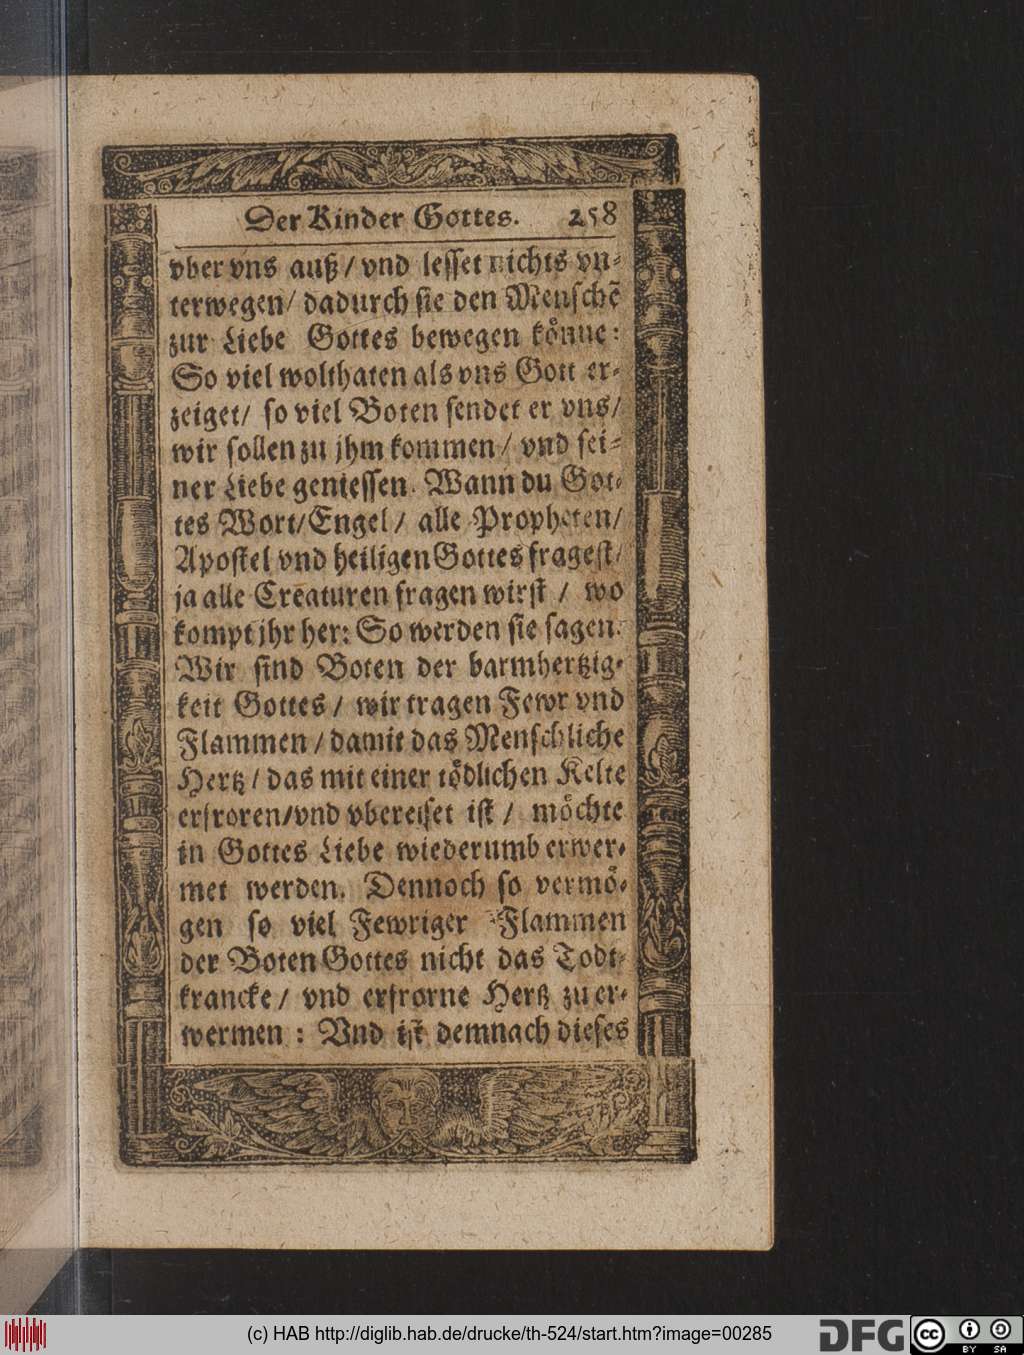 Der Kinder Gottes. 258
vber vns auß / vnd lesset nichts vn⸗
terwegen / dadurch sie den Menschē
zur Liebe Gottes bewegen koͤnne:
So viel wolthaten als vns Gott er⸗
zeiget / so viel Boten sendet er vns /
wir sollen zu jhm kommen / vnd sei⸗
ner Liebe geniessen. Wann du Got⸗
tes Wort / Engel / alle Propheten /
Apostel vnd heiligen Gottes fragest /
ja alle Creaturen fragen wirst / wo
kompt jhr her: So werden sie sagen:
Wir sind Boten der barmhertzig⸗
keit Gottes / wir tragen Fewr vnd
Flammen / damit das Menschliche
Hertz / das mit einer toͤdlichen Kelte
erfroren / vnd vbereiset ist / moͤchte
in Gottes Liebe wiederumb erwer⸗
met werden. Dennoch so vermoͤ⸗
gen so viel Fewriger Flammen
der Boten Gottes nicht das Todt⸗
krancke / vnd erfrorne Hertz zu er⸗
wermen : Vnd ist demnach dieses
(c) HAB http://diglib.hab.de/drucke/th-524/start.htm?image=00285
DFG
cc
BY SA